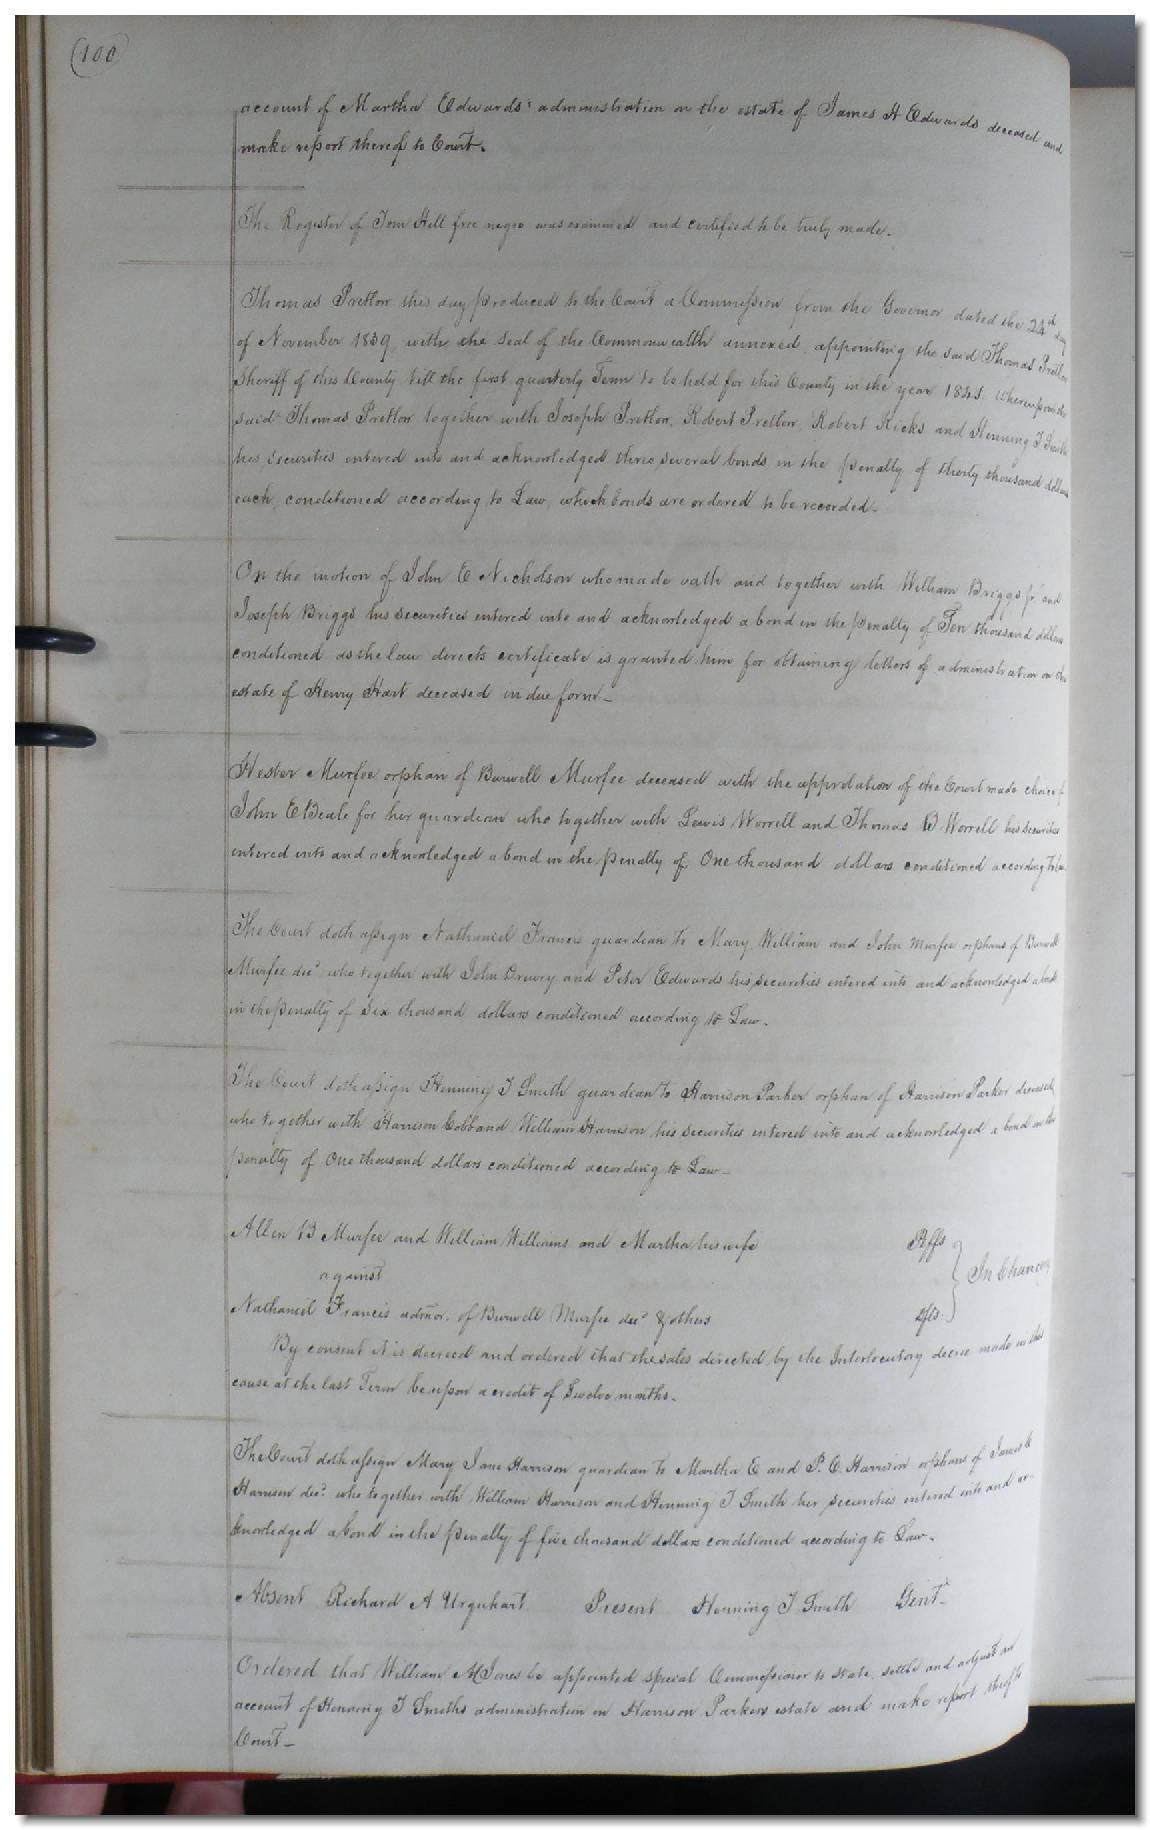 100
account of Martha Edwards' administration on the estate of James H Edwards deceased and
make report thereof to Court.
The Register of Tom Hill free negro was examined and certified to be truly made.
Thomas Pretlow this day produced to the Court a Commission from the Governor dated the 24th day
of November 1839, with the seal of the Commonwealth annexed, appointing the said Thomas Pretlow
Sheriff of this County till the first quarterly Term to be held for this County in the year 1841. Whereupon the
said Thomas Pretlow together with Joseph Pretlow, Robert Pretlow, Robert Ricks and Henning T Smith
his securities entered into and acknowledged three several bonds in the penalty of thirty thousand dollars
each, conditioned according to Law, which bonds are ordered to be recorded.
On the motion of John E Nicholson who made oath and together with William Briggs Jr and
Joseph Briggs his securities entered into and acknowledged a bond in the penalty of Ten thousand dollars
conditioned as the law directs certificate is granted him for obtaining letters of administration on the
estate of Henry Hart deceased in due form.
Hester Murfee orphan of Burwell Murfee deceased with the approbation of the Court made choice of
John E Beale for her guardian who together with Lewis Worrell and Thomas B Worrell his securities
entered into and acknowledged a bond in the penalty of One thousand dollars conditioned according to law
The Court doth assign Nathaniel Francis guardian to Mary, William and John Murfee orphans of Burwell
Murfee decd who together with John Drewry and Peter Edwards his securities entered into and acknowledged a bond
in the penalty of Six thousand dollars conditioned according to Law.
The Court doth assign Henning T Smith guardian to Harrison Parker orphan of Harrison Parker deceased,
who together with Harrison Cobb and William Harrison his securities entered into and acknowledged a bond in the
penalty of One thousand dollars conditioned according to Law
Allen B Murfee and William Williams and Martha his wife Plffs
against In Chancery
Nathaniel Francis admor. of Burwell Murfee decd & others dfts.
By consent it is decreed and ordered that the sales directed by the Interlocutory decree made in this
cause at the last Term be upon a credit of Twelve months.
The Court doth assign Mary Jane Harrison guardian to Martha E and P. C. Harrison orphans of James
Harrison decd. who together with William Harrison and Henning T Smith her securities entered into and ac-
knowledged a bond in the penalty of five thousand dollars conditioned according to Law.
Absent Richard A Urquhart. Present Henning T Smith Gent.
Ordered that William M Jones be appointed special Commissioner to state, settle and adjust an
account of Henning T Smiths administration on Harrison Parkers estate and make report thereof to
Court